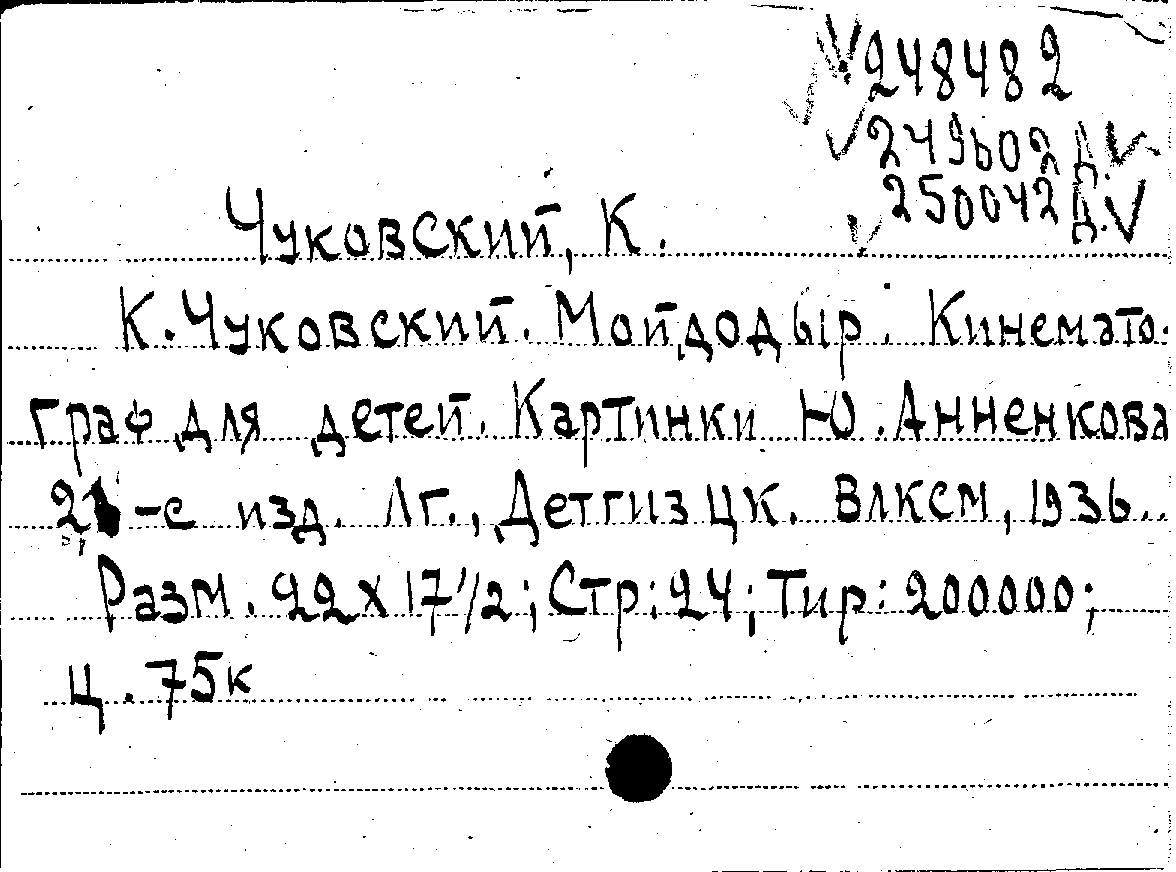 248482
249602 д.
250042 д.
Чуковский, К.
К. Чуковский. Мойдодыр. Кинемато-
граф для детей. Картинки Ю. Анненкова
-е изд. Лг., Детгиз ЦК. ВЛКСМ, 1936..
Разм. 22 х 17 1/2; Стр: 24; Тир: 200000;
Ц. 75к